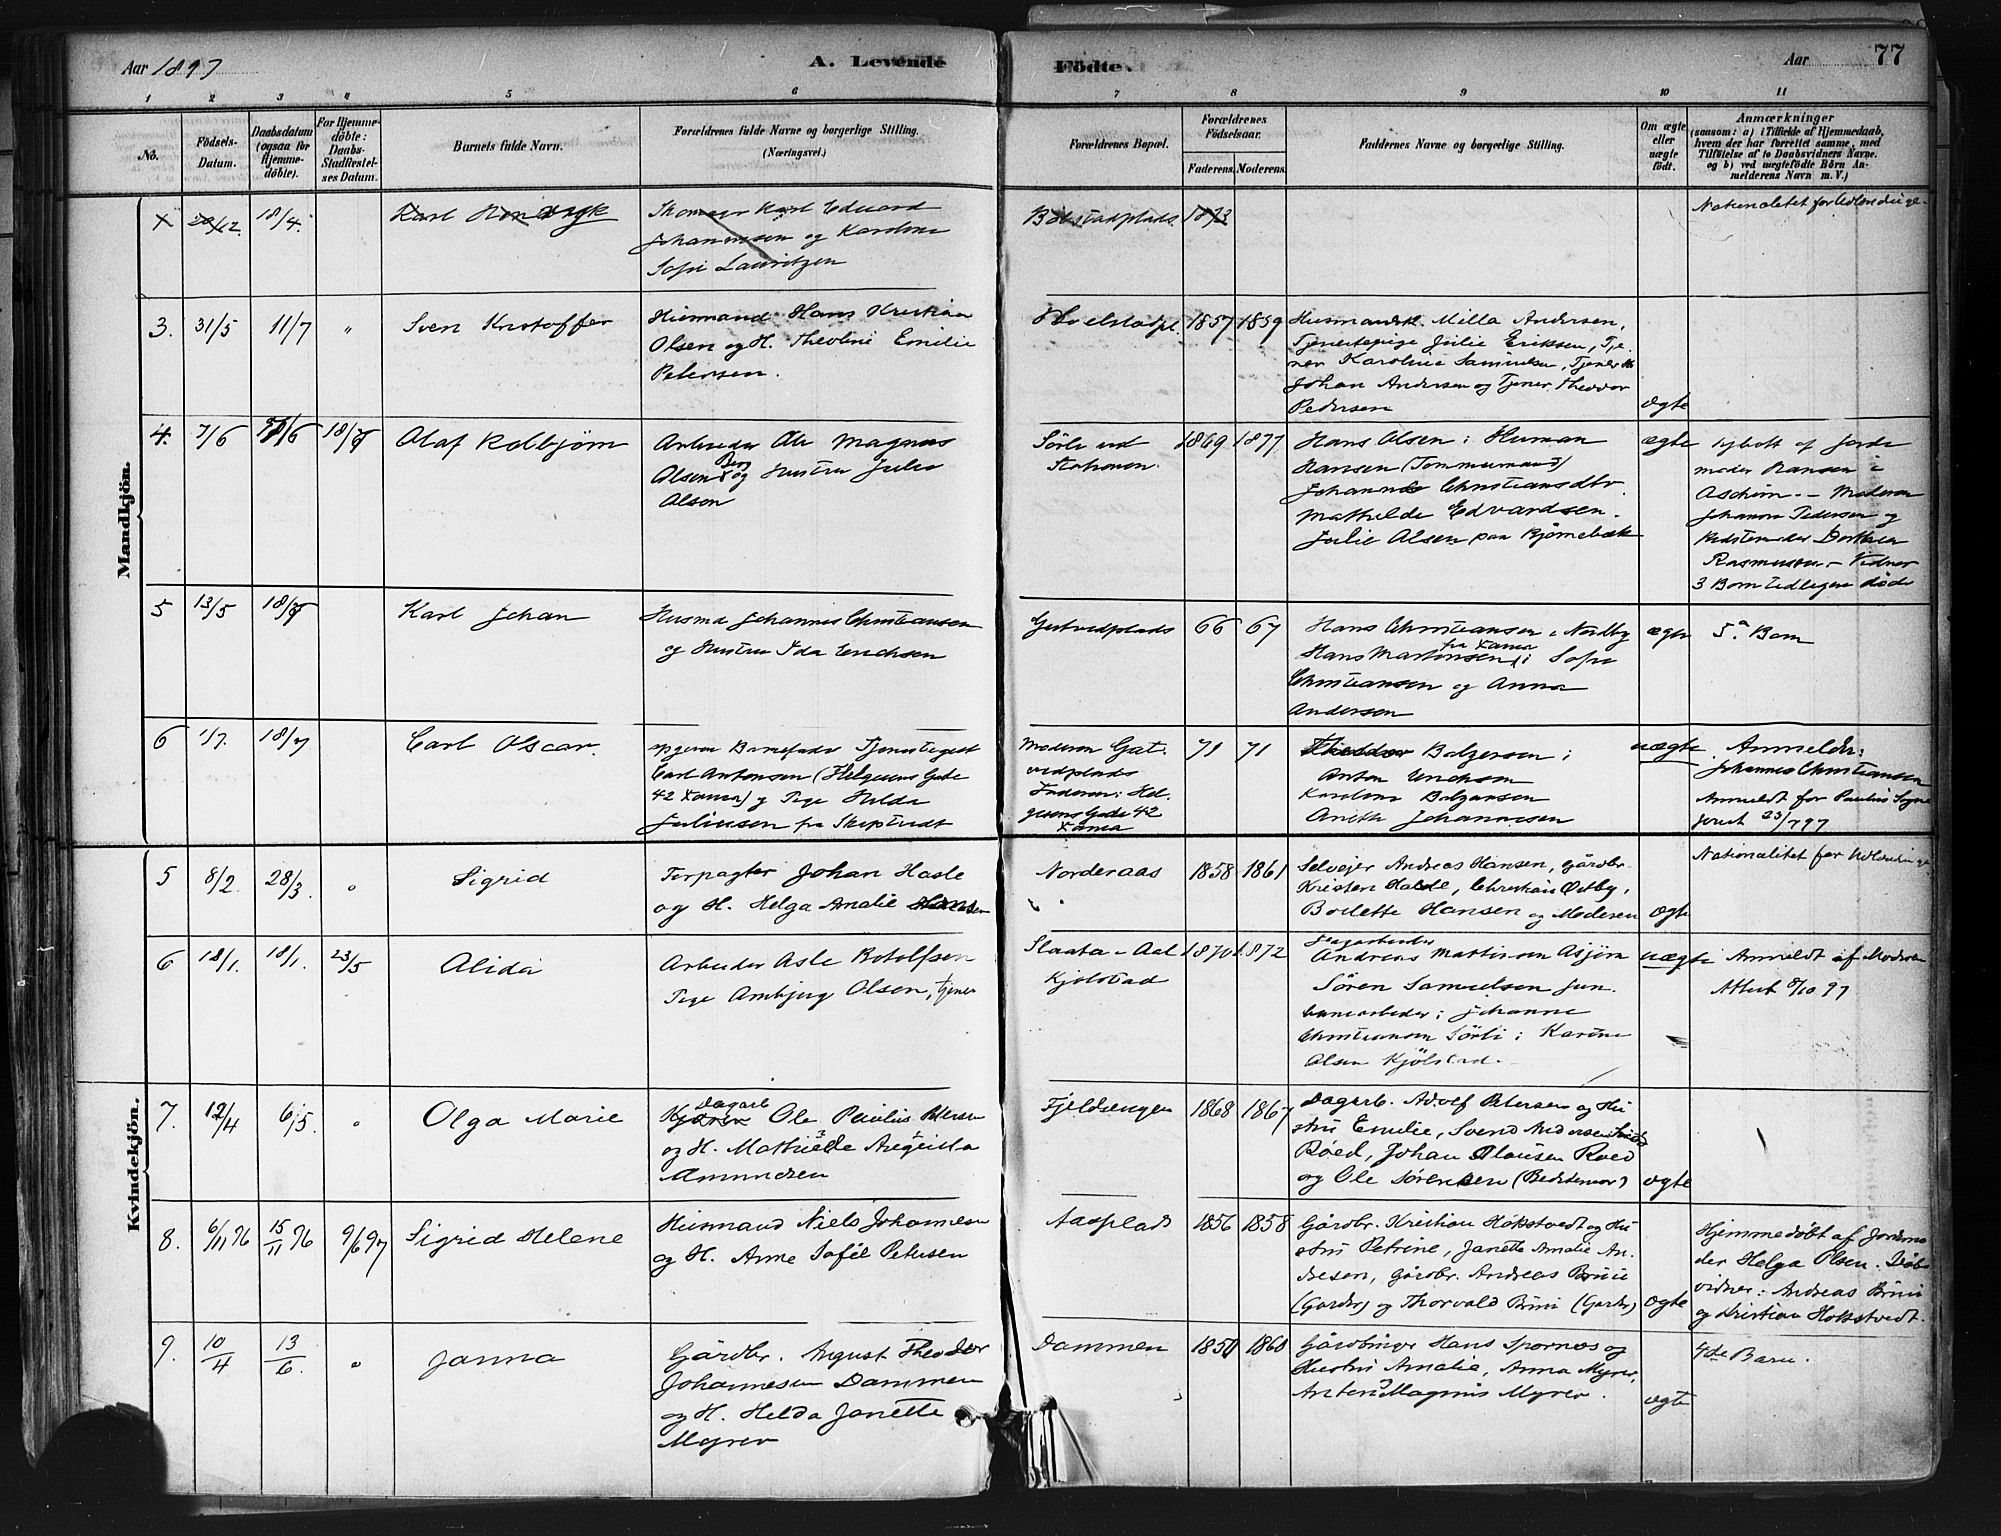 Aar 1897
A. Levende
Födte.
Aar
77
1 2 3 4 5 6 7 8 9 10 11
No.
Födsels-
Datum.
Daabsdatum
(ogsaa for
Hjemme-
döbte).
For Hjemme-
döbte:
Daabs-
Stadfæstel-
ses Datum.
Barnets fulde Navn.
Forældrenes fulde Navne og borgerlige Stilling.
(Næringsvei.)
Forældrenes Bopæl.
Forældrenes
Födselsaar.
Faderens. Moderens.
Faddernes Navne og borgerlige Stilling.
Om ægte
eller
uægte
födt.
Anmærkninger
(saasom: a) i Tilfælde af Hjemmedaab,
hvem der har forrettet samme, med
Tilföielse af to Daabsvidners Navne.
og b) ved uægtefödte Börn An-
melderens Navn m. V.)
Mandkjön.
18/4.
Karl
Karl Edvard
Johannessen og Karoline
Sofie Lauritzen
Bölstadplads
1873
Nationalitet for
3. 31/5 11/7 "
Sven Kristoffer
Husmand Hans Kristian
Olsen og H. Theoline Emilie
Petersen.
1857 1859
Husmandsk. Milla Andersen,
Tjenestepige Julie Eriksen, Tje-
ner Karoline Samuelsen, Tjener
Johan Andersen og Tjener Theodor
Pedersen
ægte
4. 7/6
Olaf Kolbjørn
Arbeider Ole Magnus
Olsen Berg og Hustru Julie
Olsen
Sörli ved
Stationen
1869 1877
Hans Olsen: Herman
Hansen (Tømmermand)
Johanne Christiansdtr.
Mathilde Edvardsen.
Julie Olsen paa Bjørnebæk
ægte
af Jorde
moder Hansen i
Askim. - Moderen
Johanne Pedersen og
Bedstemoder Dorthea
Rasmussen - Vidner
3 Børn tidligere døde
5 13/5
Karl Johan
Husmd Johannes Christiansen
og Hustru Ida Erichsen
Gutvedplads
66 67
Hans Christiansen i Nordby
Hans Martinsen fra Xania: Sofie
Christiansen og Anna
Andersen
ægte
5te Barn
6 1/7. 18/7
Carl Oscar.
opgiven Barnefader Tjenestegut
Carl Antonsen (Helgesens Gade
42 Xania) og Pige Hilda
Juliussen fra Skiptvedt
Moderen Gut-
vedplads
Faderen: Hel-
gesens Gade 42
Xania
71 71
Theodor Balzersen:
Anton Erichsen
Karoline Balzersen
Anette Johannesen
uægte
Anmelder:
Johannes Christiansen
Anmeldt for Paulus Sogne
prest 23/7 97
Kvindekjön.
5 8/2. 28/3. "
Sigrid
Forpagter Johan Hasle
og H. Helga Amalie Hansen
Norderaas
1858 1861
Selveier Andreas Hansen, Gårdbr.
Kristen Hasle, Christian Østby,
Bodette Hansen og Moderen
ægte
Nationalitet for
6 18/1. 18/1. 23/5
Alida
Arbeider Asle Botolfsen
Pige Ambjørg Olsen, tjener
Slaata - Aal
Kjølstad
1870 1872
Dagarbeider
Andreas Martinsen Asjörn
Sören Samuelsen Jun.
banearbeider: Johanne
Christiansen Sörli: Karine
Olsen Kjölstad.
uægte
Anmeldt af Moderen
Attest 8/10 97
7. 12/4 6/5. "
Olga Marie
Dagarb. Ole Paulus Petersen
og H. Mathilde Augusta
Amundsen
Fjeldsengen
1868 1867
Dagarb. Adolf Petersen og Hu-
stru Emilie, Svend Andersen
Røed, Johan Clausen Roed
og Ole Sørensen (Bedstemor)
ægte
8. 6/11 96 15/11 96 9/6 97
Sigrid Helene
Husmand Niels Johannesen
og H. Anne Sofie Petersen
Aasplads
1856 1858
Gårdbr. Kristian Hökstvedt og Hu-
stru Petrine, Janette Amalie An-
dresen, Gårdbr. Andreas Bruni
(Garder) og Thorvald Bruni (Garder)
ægte
Hjemmedöbt af Jordmo-
der Helga Olsen. Døbs-
vidner: Andreas Bruni
og Kristian Hökstvedt.
9. 10/4 13/6. "
Janna
Gårdbr. August Theodor
Johannesen Dammen
og H. Helda Janette
Myrer
Dammen
1850 1860
Gårdbruger Hans Spornæs og
Hustru Amalie, Anna Myrer,
Anton Magnus Myrer.
ægte
4de Barn.